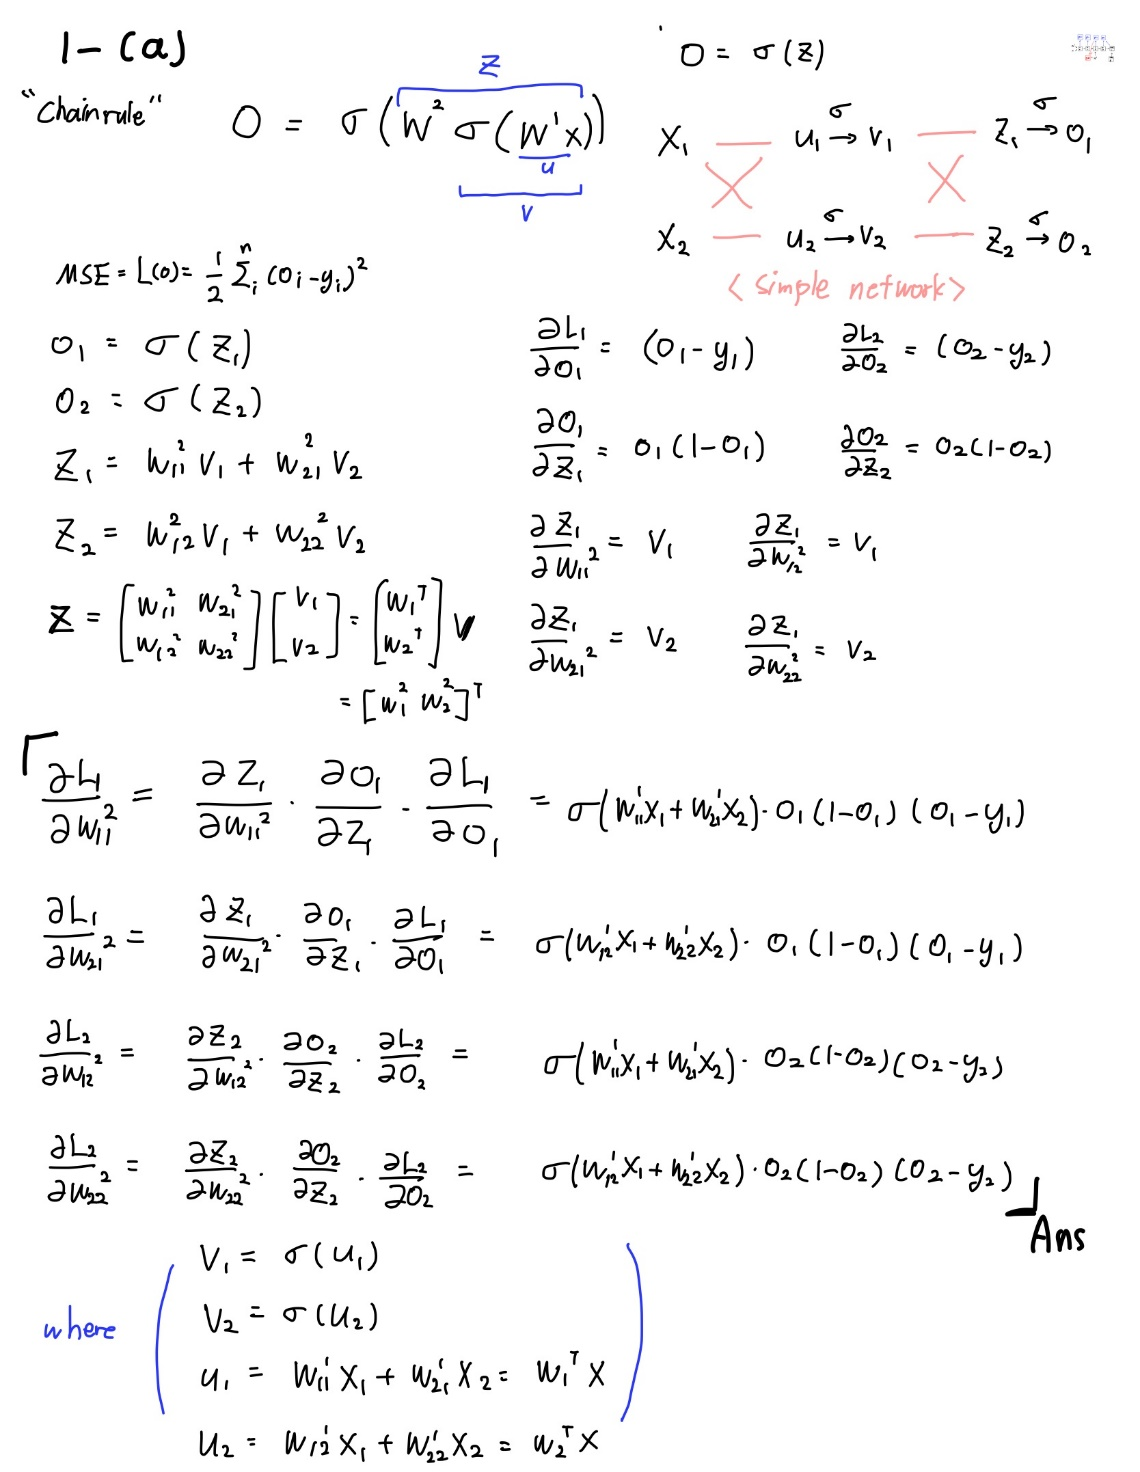 1-(a)
"Chain rule"
O = σ(W² σ(W¹x))
Z
u
v
O = σ(Z)
X₁ u₁ →σ v₁ Z₁ →σ O₁
X₂ u₂ →σ v₂ Z₂ →σ O₂
<simple network>
MSE = L(o) = 1/2 Σᵢⁿ (oᵢ - yᵢ)²
O₁ = σ(Z₁)
O₂ = σ(Z₂)
Z₁ = W₁₁² V₁ + W₂₁² V₂
Z₂ = W₁₂² V₁ + W₂₂² V₂
Z = [W₁₁² W₂₁² W₁₂² W₂₂²] [V₁ V₂] = [W₁ᵀ W₂ᵀ] V
= [W₁² W₂²]ᵀ
∂L₁/∂O₁ = (O₁ - y₁) ∂L₂/∂O₂ = (O₂ - y₂)
∂O₁/∂Z₁ = O₁(1-O₁) ∂O₂/∂Z₂ = O₂(1-O₂)
∂Z₁/∂W₁₁² = V₁ ∂Z₁/∂W₁₂² = V₁
∂Z₁/∂W₂₁² = V₂ ∂Z₁/∂W₂₂² = V₂
∂L₁/∂W₁₁² = ∂Z₁/∂W₁₁² · ∂O₁/∂Z₁ · ∂L₁/∂O₁ = σ(W₁₁¹X₁ + W₂₁¹X₂) · O₁(1-O₁)(O₁ - y₁)
∂L₁/∂W₂₁² = ∂Z₁/∂W₂₁² · ∂O₁/∂Z₁ · ∂L₁/∂O₁ = σ(W₁₂¹X₁ + W₂₂¹X₂) · O₁(1-O₁)(O₁ - y₁)
∂L₂/∂W₁₂² = ∂Z₂/∂W₁₂² · ∂O₂/∂Z₂ · ∂L₂/∂O₂ = σ(W₁₁¹X₁ + W₂₁¹X₂) · O₂(1-O₂)(O₂ - y₂)
∂L₂/∂W₂₂² = ∂Z₂/∂W₂₂² · ∂O₂/∂Z₂ · ∂L₂/∂O₂ = σ(W₁₂¹X₁ + W₂₂¹X₂) · O₂(1-O₂)(O₂ - y₂)
Ans
where
V₁ = σ(u₁)
V₂ = σ(u₂)
u₁ = W₁₁¹ X₁ + W₂₁¹ X₂ = W₁ᵀ X
u₂ = W₁₂¹ X₁ + W₂₂¹ X₂ = W₂ᵀ X